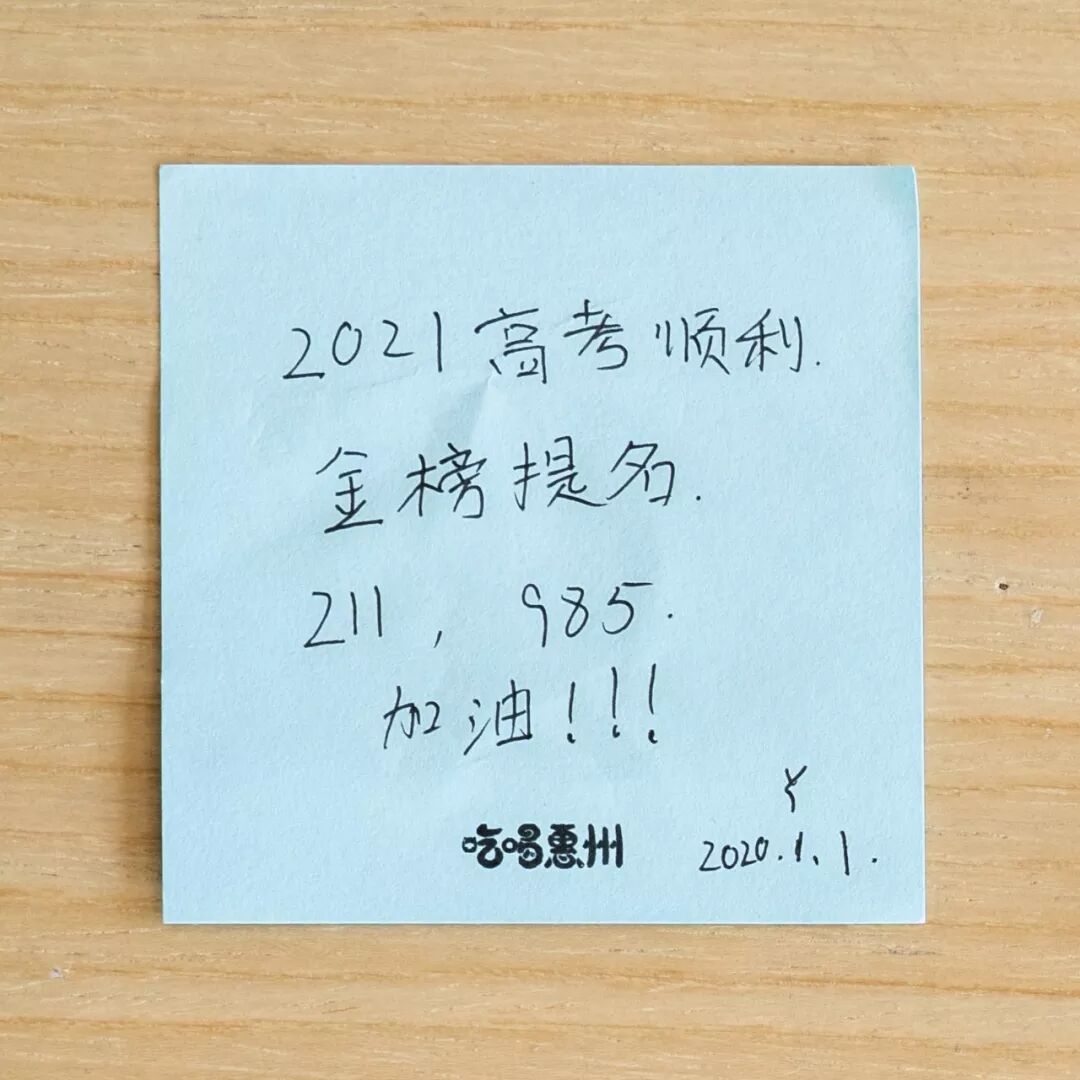 2021高考顺利.
金榜提名.
211, 985.
加油!!!
吃喝惠州
2020.1.1.